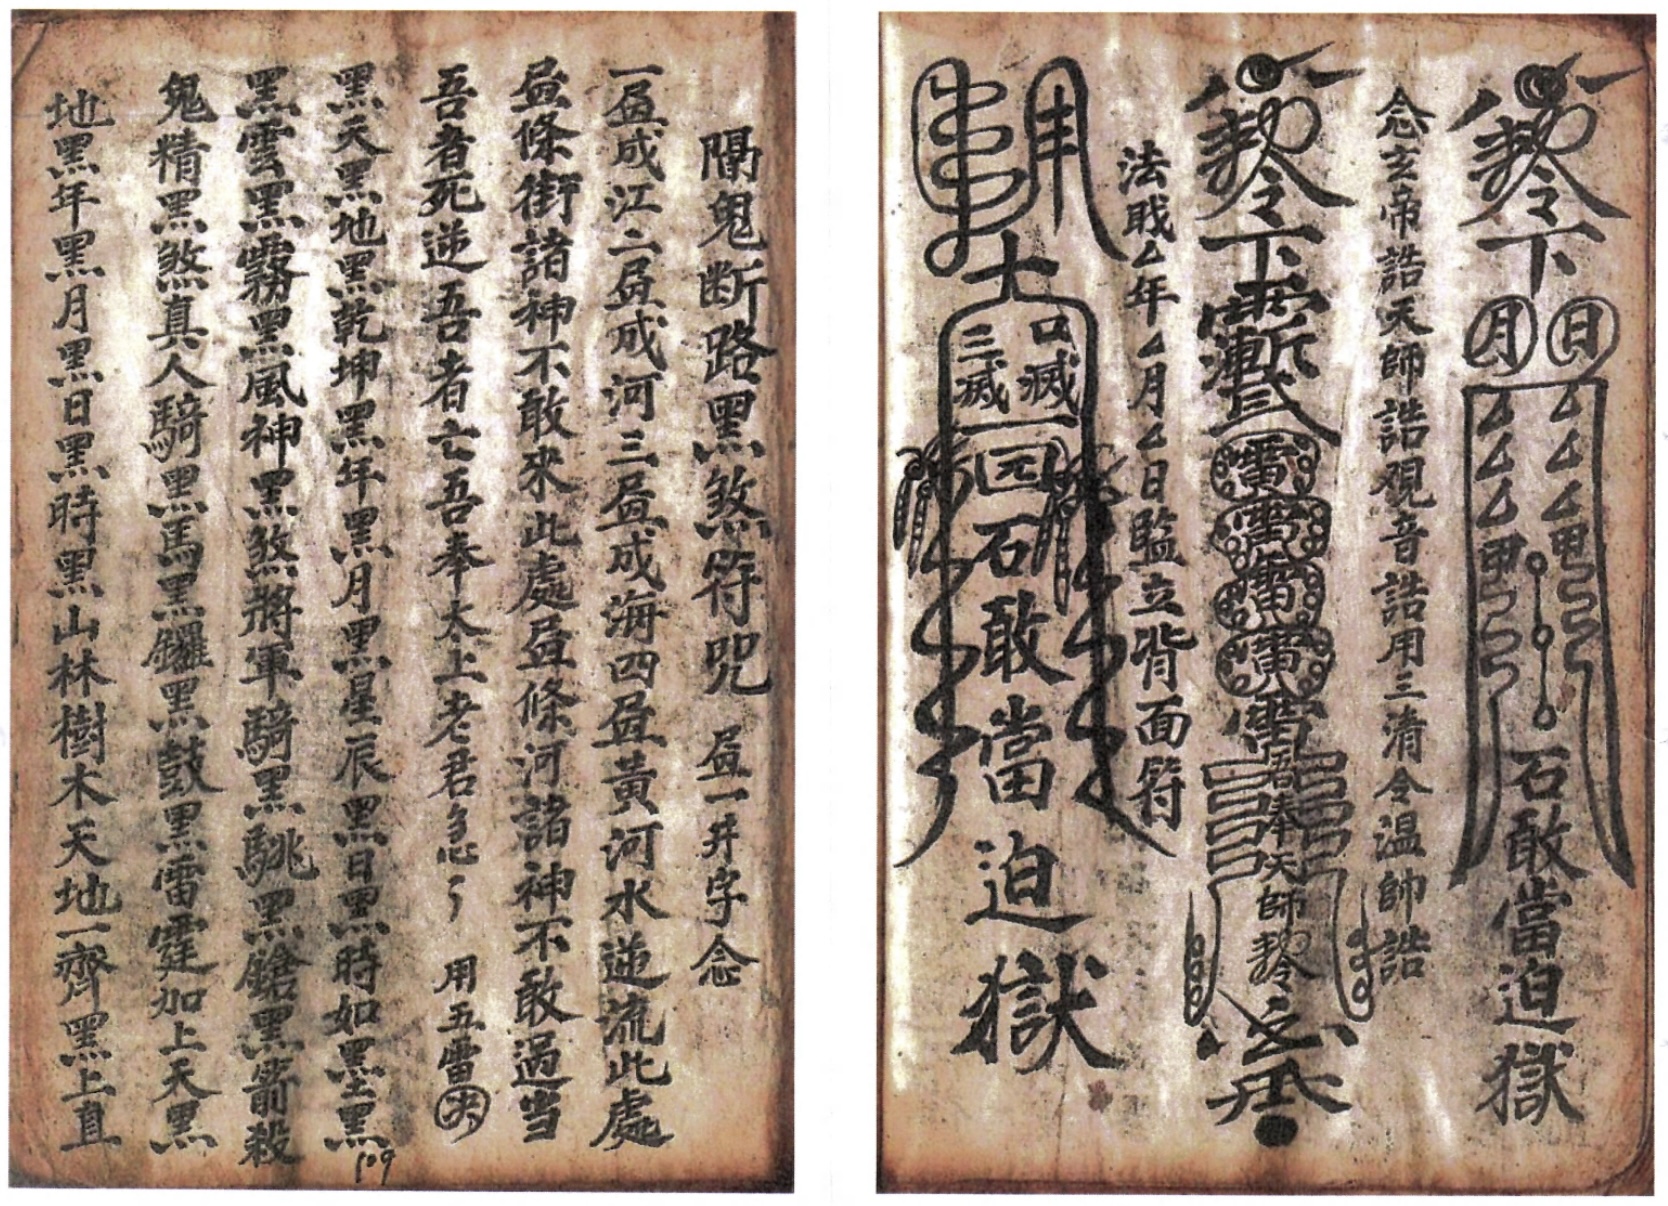 令下 日 月 厶厶厶 厶厶厶 石敢當迫獄
念玄帝誥天師誥观音誥用三清令温帥誥
令下 雷 雷 雷 奉天師 令
法 厶年厶月厶日監立背面符
口滅 三滅 石敢當迫獄
鬼断路黑煞符咒 昼一井字念
一昼成江二昼成河三昼成海四昼黃河水逆流此處
昼條街諸神不敢來此處昼條河諸神不敢過当
吾者死逆吾者亡吾奉太上老君急 用五雷
黑天黑地黑乾坤黑年黑月黑星辰黑日黑時如黑土黑
黑雲黑霧黑風神黑煞將軍騎黑駣黑鎗黑箭殺
鬼精黑煞真人騎黑馬黑鑼黑鼓黑雷霆加上天黑
地黑年黑月黑日黑時黑山林樹木天地一齊黑上直
109